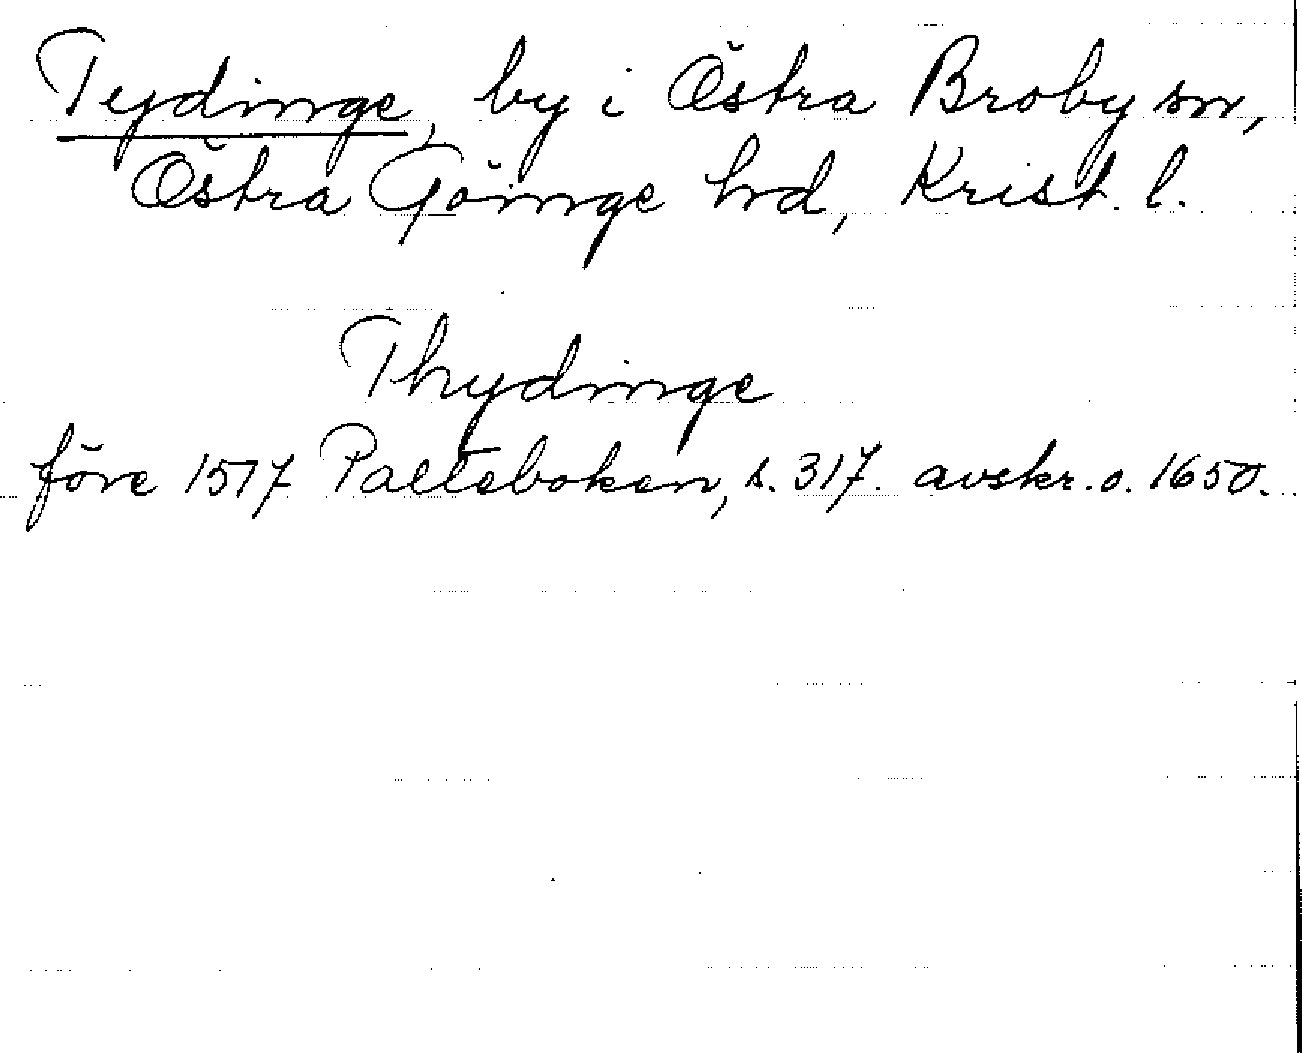 Tydinge, by i Östra Broby sn,
Östra Göinge hrd, Krist. l.
Thydinge
före 1517 Palteboken, s. 317. avskr. o. 1650.